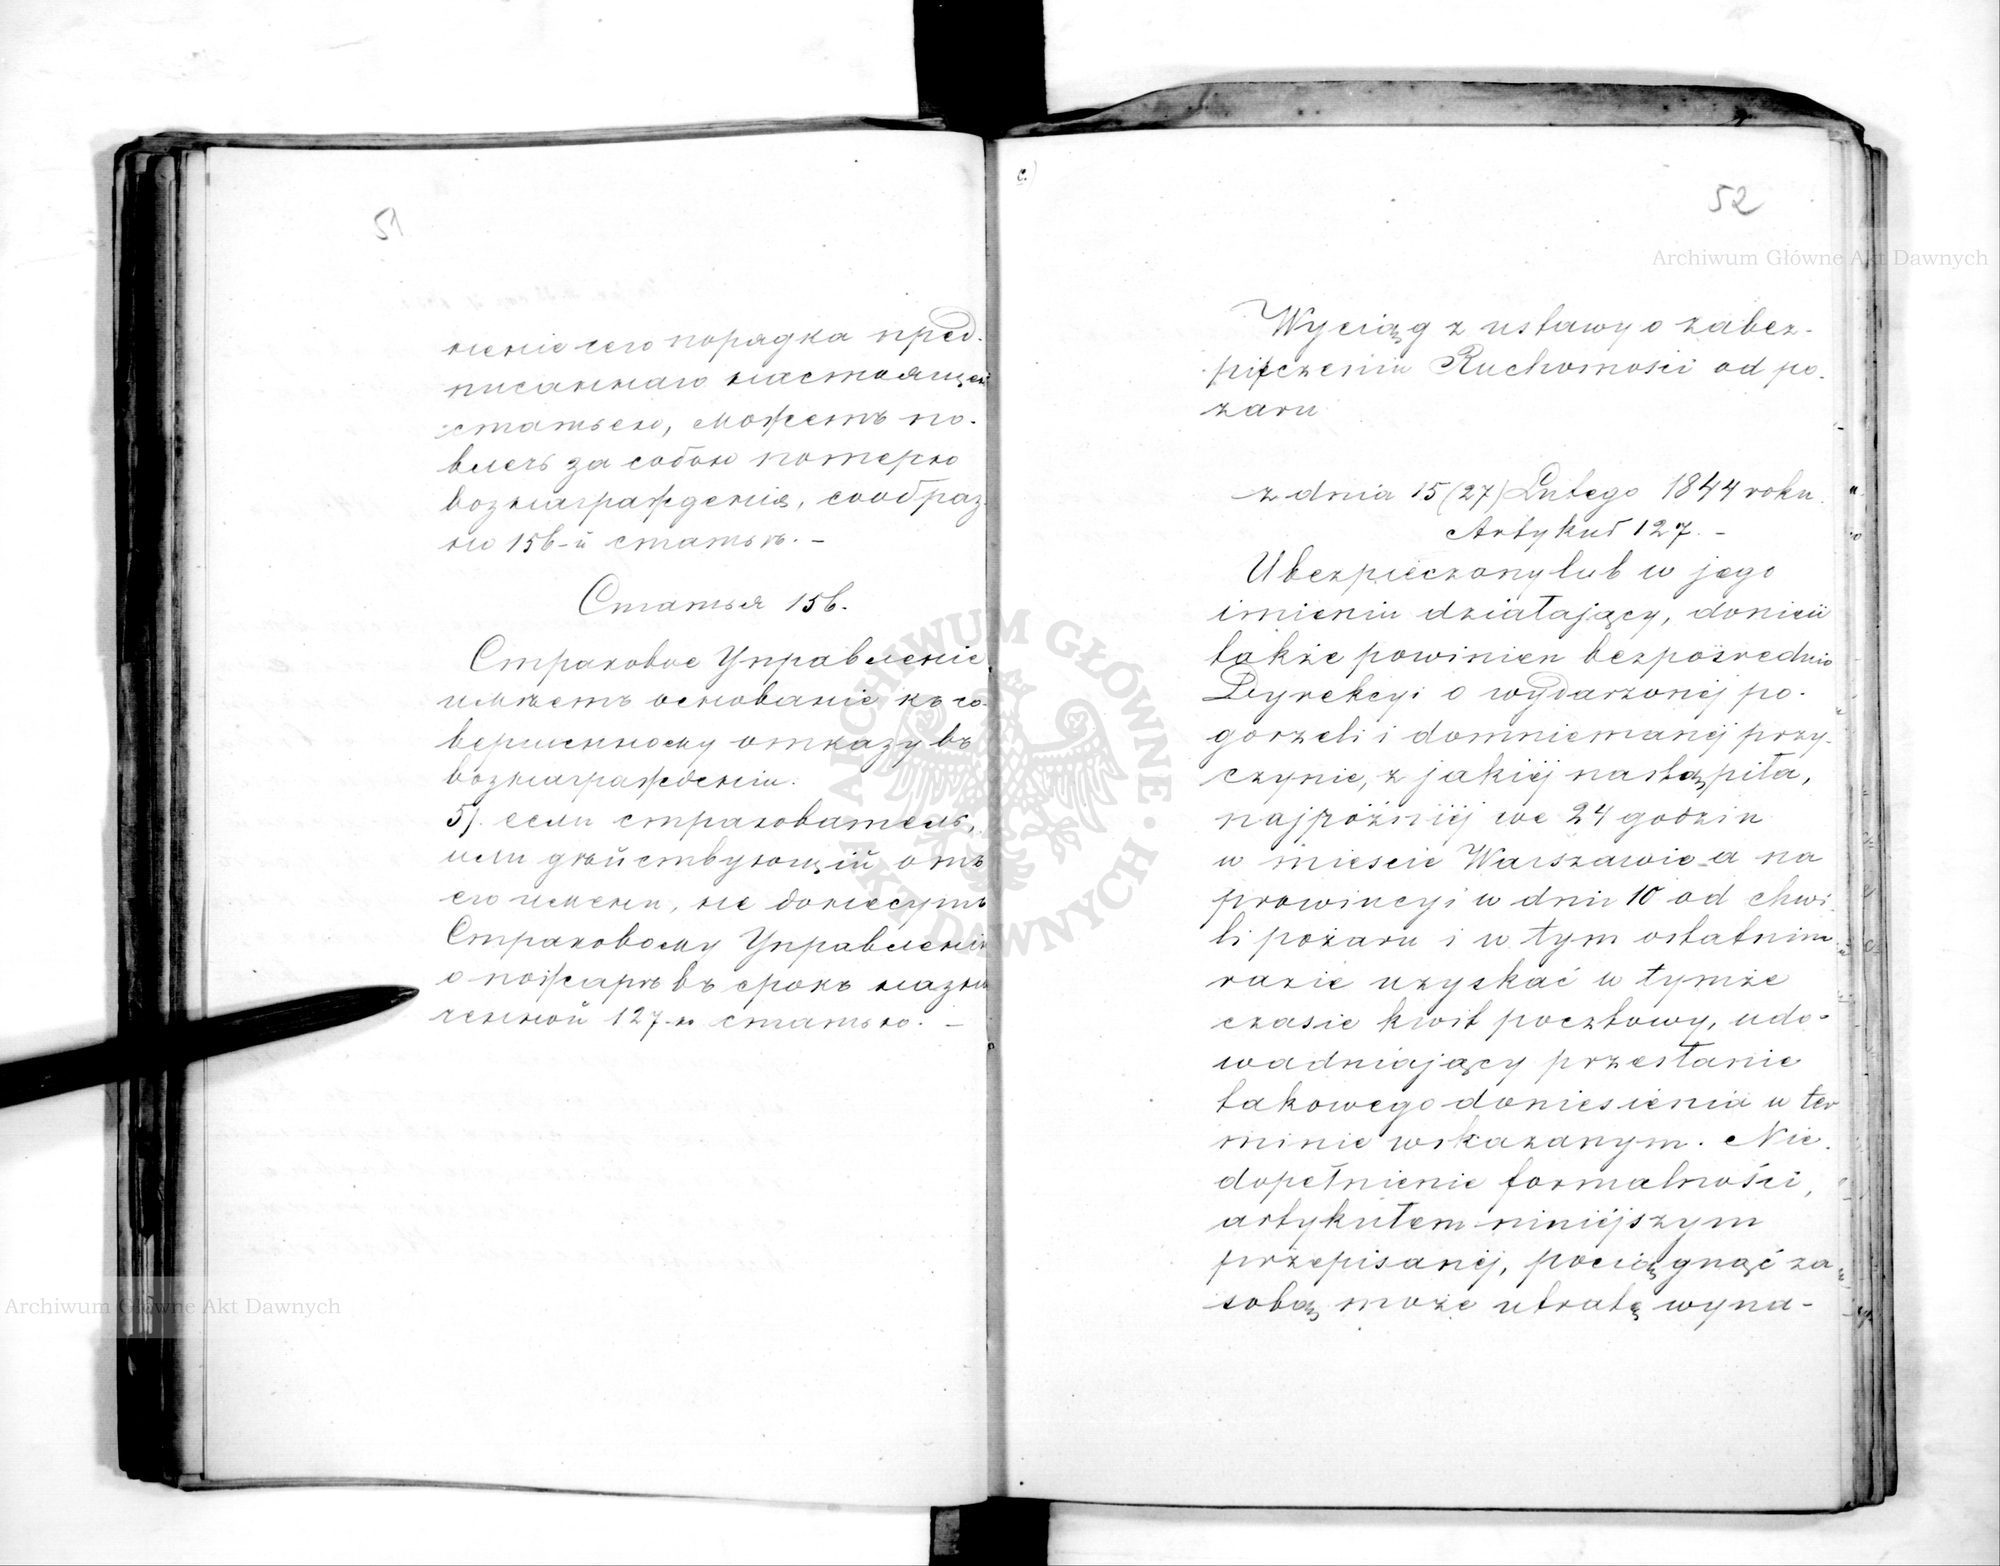 51
неніе сего порядка пред-
писаннаго настоящей
статьею, можетъ по-
влечь за собою потерю
вознагражденія, сообраз-
но 156-й статьѣ. –
Статья 156.
Страховое Управленіе
имѣетъ основаніе къ со-
вершенному отказу въ
вознагражденіи:
5/. если страхователь,
или дѣйствующій отъ
его имени, не донесутъ
Страховому Управленію
о пожарѣ въ срокъ назна
ченной 127-ю статьею. –
c.)
52
Wyciąg z ustawy o zabez-
pieczeniu Ruchomości od po-
żaru
z dnia 15 (27) Lutego 1844 roku.
Artykuł 127. –
Ubezpieczony lub w jego
imieniu działający, donieść
także powinien bezpośrednio
Dyrekcyi o wydarzonéj po-
gorzeli i domniemanéj przy-
czynie, z jakiéj nastąpiła,
najpóźniéj we 24 godzin
w mieście Warszawie a na
prowincyi w dniu 10 od chwi-
li pożaru i w tym ostatnim
razie uzyskać w tymże
czasie kwit pocztowy, udo-
wadniający przesłanie
takowego doniesienia w ter
minie wskazanym. Nie-
dopełnienie formalności,
artykułem niniéjszym
przepisanéj, pociągnąć za
sobą może utratę wyna-
Archiwum Główne Akt Dawnych
Archiwum Główne Akt Dawnych
ARCHIWUM GŁÓWNE AKT DAWNYCH